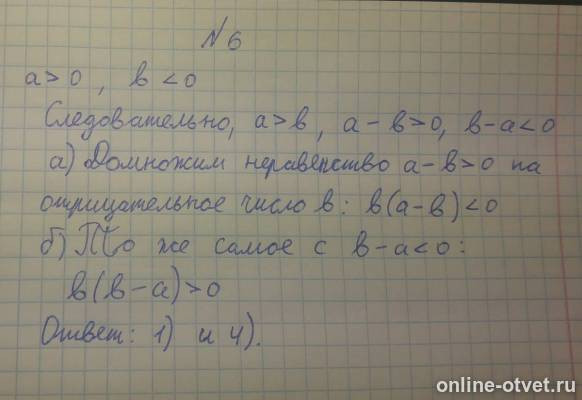 № 6
a > 0 , в < 0
Следовательно, a > в , a - в > 0, в - a < 0
а) Домножим неравенство a - в > 0 на
отрицательное число в: в(a - в) < 0
б) То же самое с в - a < 0:
в(в - a) > 0
Ответ: 1) и 4).
online-otvet.ru